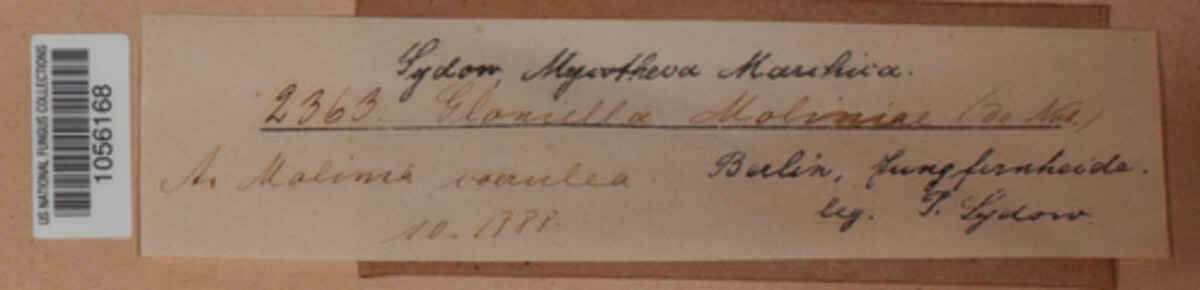 US NATIONAL FUNGUS COLLECTIONS
1056168
Sydow, Mycotheca Marchica.
2363. Gloniella Moliniae (de Not.)
A. Molinia coerulea.
10. 1888.
Berlin, Jungfernheide.
leg. P. Sydow